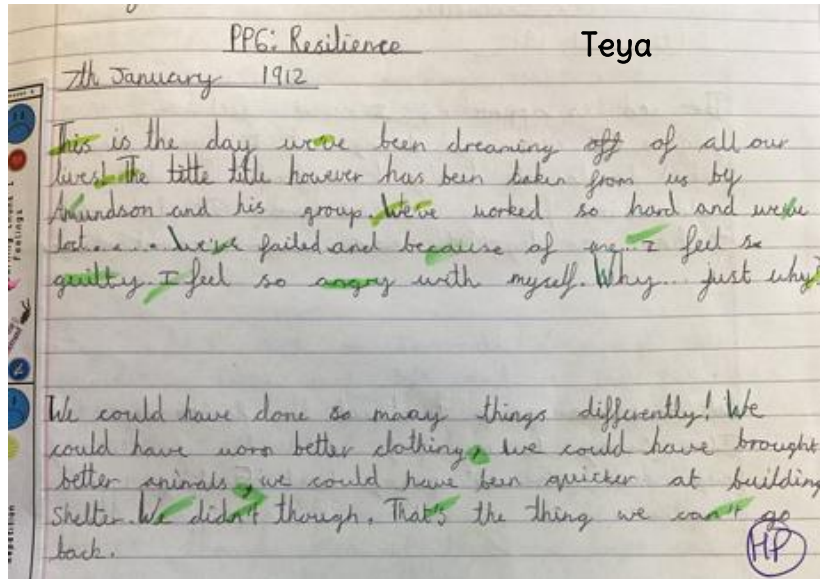 PPG: Resilience
Teya
7th January 1912
This is the day we've been dreaming off of all our
lives! The titte title however has been taken from us by
Amundson and his group. We've worked so hard and we've
lost..... We've failed and because of me... I feel so
guilty. I feel so angry with myself. Why... just why?
Feelings
We could have done so many things differently! We
could have worn better clothing, we could have brought
better animals, we could have been quicker at building
shelter. We didn't though. That's the thing we can't go
back.
HP